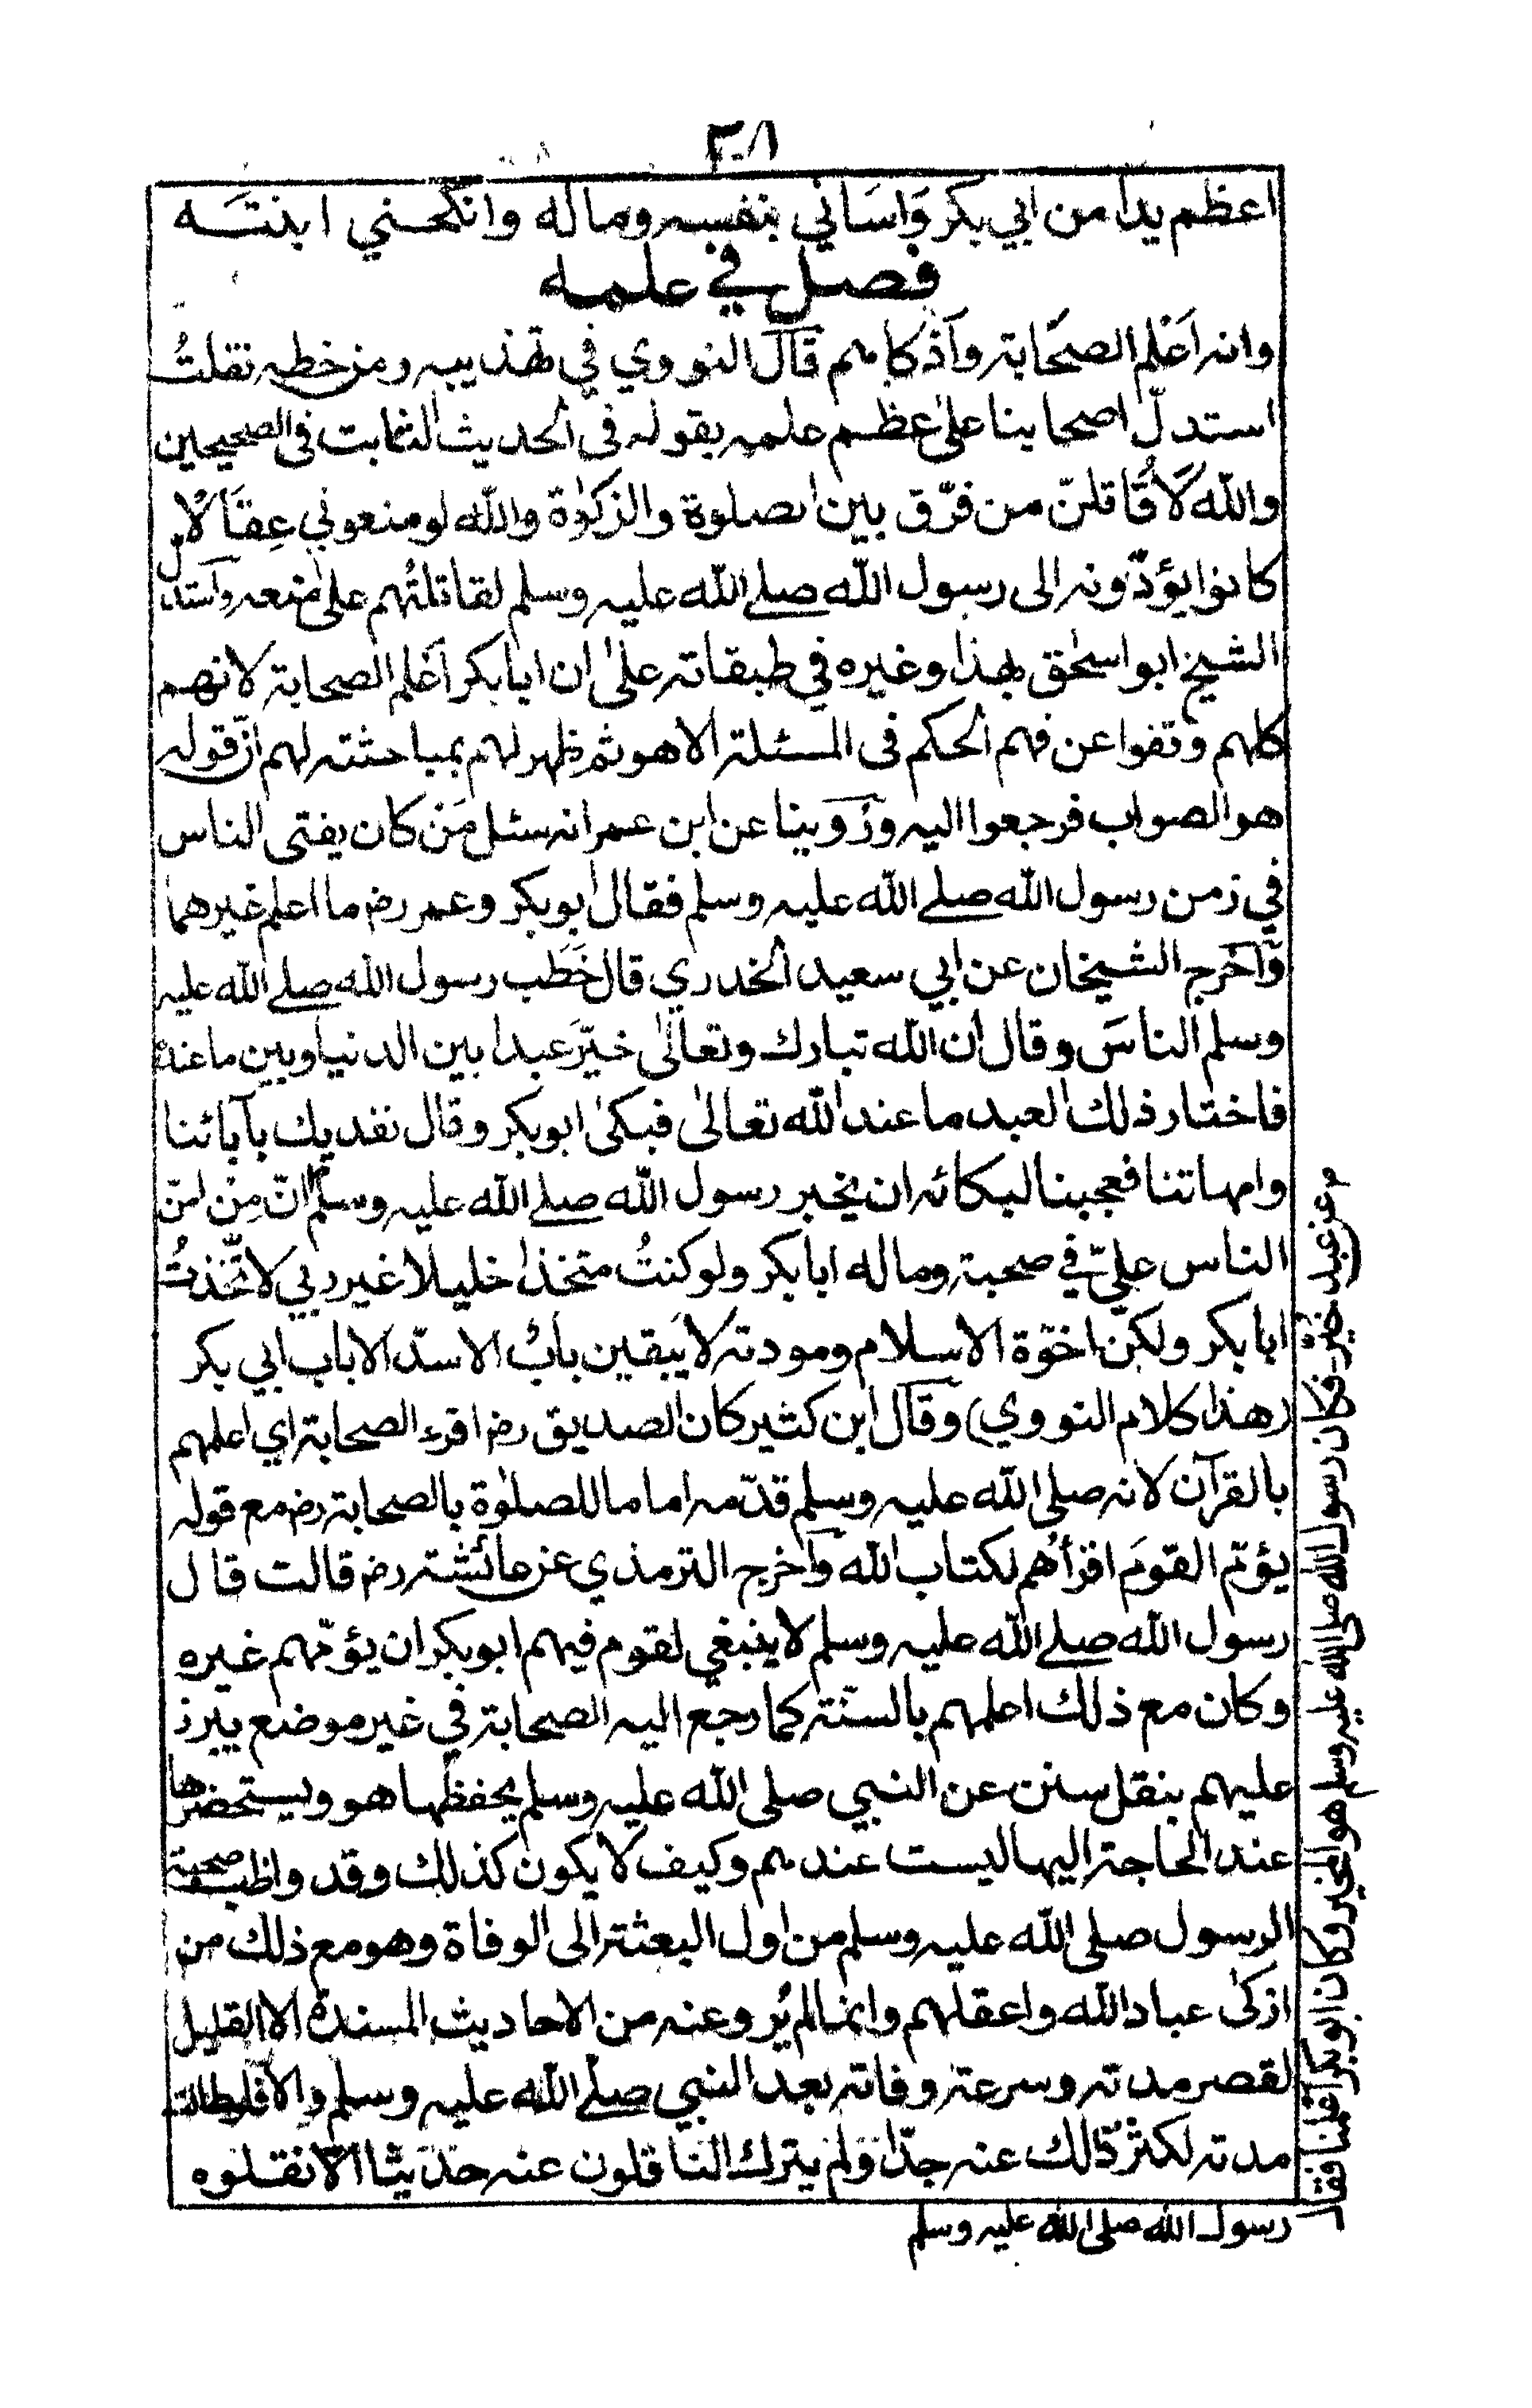 ٣٠٨
اعظم يدا من ابي بكر وَاسَاني بنفسه وماله وانكحني ابنتَه
فصل في علمه
وانه اَعْلم الصحَابة واَذْكاهم قالَ النووي في تهذيبه ومن خطه نقلتُ
استدلّ اصحابنا علىٰ عظم علمه بقوله فى الحديث الثابت فى الصحيحين
والله لَاُقَاتلنّ من فرّق بين الصلوة والزكوٰة والله لو منعوني عِقَالًا
كانوا يؤدّونه الى رسول الله صلے الله عليه وسلم لقاتلتُهم علىٰ منعه واستدلّ
الشيخ ابو اسحٰق بهذا وغيره في طبقاته علىٰ ان ابا بكر اَعْلم الصحابة لانهم
كلهم وقفوا عن فهم الحكم فى المسئلة الا هو ثم ظهر لهم بمباحثته لهم انّ قوله
هو الصواب فرجعوا اليه ورُوِينا عن ابن عمر انه سئل مَنْ كان يفتى الناس
في زمن رسول الله صلے الله عليه وسلم فقال ابو بكر وعمر رض ما اعلم غيرهما
وَاَخرج الشيخان عن ابي سعيد الخدري قال خَطَب رسول الله صلے الله عليه
وسلم الناسَ وقال ان الله تبارك وتعالٰى خيّرَ عبدا بين الدنيا وبين ما عنده
فاختار ذلك العبد ما عند الله تعالىٰ فبكىٰ ابو بكر وقال نفديك بآبائنا
وامهاتنا فعجبنا لبكائه ان يخبر رسول الله صلے الله عليه وسلم انّ مِنْ امنّ
الناس عليّ في صحبته وماله ابا بكر ولو كنتُ متخذا خليلا غير ربي لاتّخذتُ
ابا بكر ولكن اخوّة الاسلام ومودته لا يَبقين بابٌ الا سدّ الا باب ابي بكر
(هذا كلام النووي) وقال ابن كثير كان الصديق رض اقرء الصحابة اي اعلمهم
بالقرآن لانه صلى الله عليه وسلم قدّمه اماما للصلوٰة بالصحابة رض مع قوله
يؤمّ القومَ اقرأهم لكتاب الله وَاَخرج الترمذي عن عائشة رض قالت قال
رسول الله صلے الله عليه وسلم لا ينبغي لقوم فيهم ابو بكر ان يؤمّهم غيره
وكان مع ذلك اعلمهم بالسنّة كما رجع اليه الصحابة في غير موضع يبرز
عليهم بنقل سنن عن النبي صلى الله عليه وسلم يحفظها هو ويستحضرها
عند الحاجة اليها ليست عندهم وكيف لا يكون كذلك وقد واظب صحبة
الرسول صلى الله عليه وسلم من اول البعثة الى الوفاة وهو مع ذلك من
ازكى عباد الله واعقلهم وانما لم يُرو عنه من الاحاديث المسندة الا القليل
لقصر مدته وسرعة وفاته بعد النبي صلے الله عليه وسلم والا فلو طالت
مدته لكثر ذلك عنه جدّا ولم يترك الناقلون عنه حديثا الا نقلوه
م عن عبد خيّره فكان رسول الله صلى الله عليه وسلم هو المخير وكان ابو بكر اعلمنا فقال
رسول الله صلى الله عليه وسلم